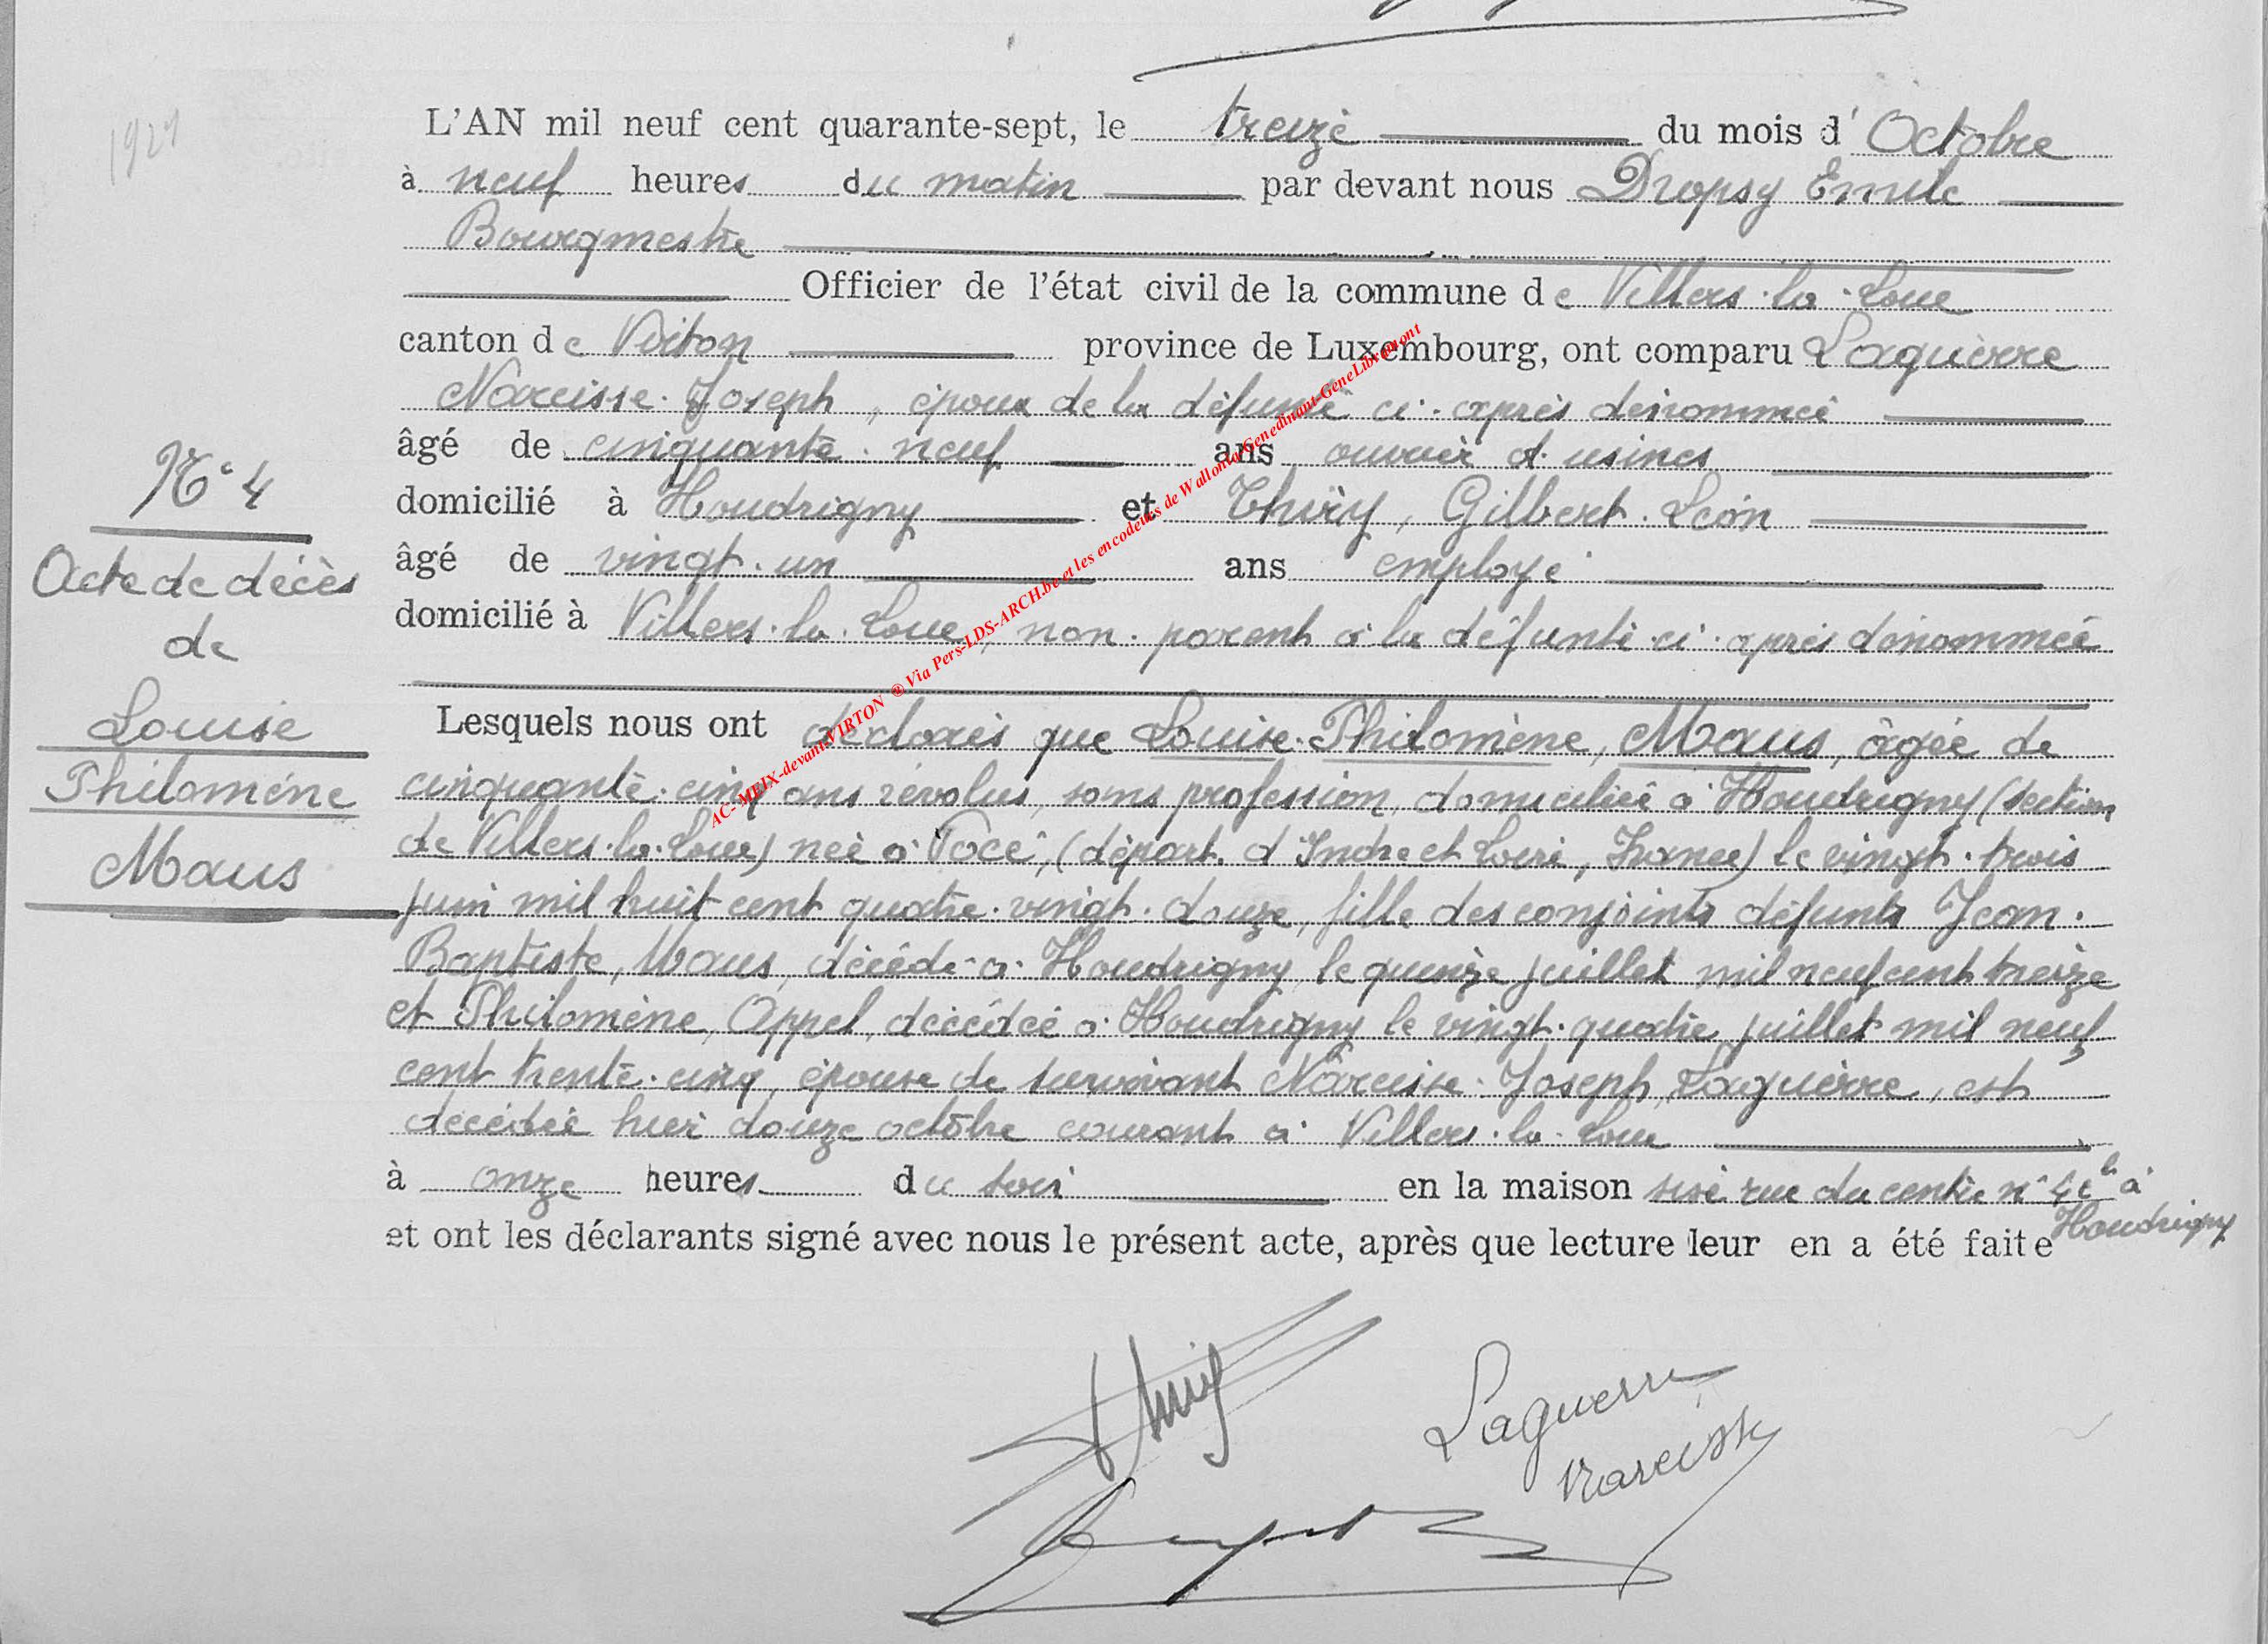 1921
L'AN mil neuf cent quarante-sept, le treize du mois d'Octobre
à neuf heures du matin par devant nous Dropsy Emile
Bourgmestre
Officier de l'état civil de la commune de Villers-la-Loue
canton de Virton province de Luxembourg, ont comparu Laguerre
Narcisse-Joseph, époux de la défunte ci-après dénommée
âgé de cinquante-neuf ans ouvrier d'usines
domicilié à Houdrigny et Thiry, Gilbert-Léon
âgé de vingt-un ans employé
domicilié à Villers-la-Loue, non-parent à la défunte ci-après dénommée
N° 4
Acte de décès
de
Louise
Philomène
Maus
Lesquels nous ont déclaré que Louise-Philomène, Maus, âgée de
cinquante-cinq ans révolus, sans profession, domiciliée à Houdrigny (section
de Villers-la-Loue) née à Pocé, (départ. d'Indre et Loire, France) le vingt-trois
juin mil huit cent quatre-vingt-douze, fille des conjoints défunts Jean-
Baptiste, Maus, décédé à Houdrigny, le quinze juillet mil neuf cent treize
et Philomène, Appel, décédée à Houdrigny le vingt-quatre juillet mil neuf
cent trente-cinq, épouse de survivant Narcisse-Joseph, Laguerre, est
décédée hier douze octobre courant à Villers-la-Loue
à onze heures du soir en la maison sise rue du centre n° à
Houdrigny
et ont les déclarants signé avec nous le présent acte, après que lecture leur en a été faite
Thiry
Laguerre
Narcisse
AC- MEIX-devant-VIRTON ® Via Pers-LDS-ARCH.be et les encodeurs de Wallonia-Genedinant-GeneLibramont